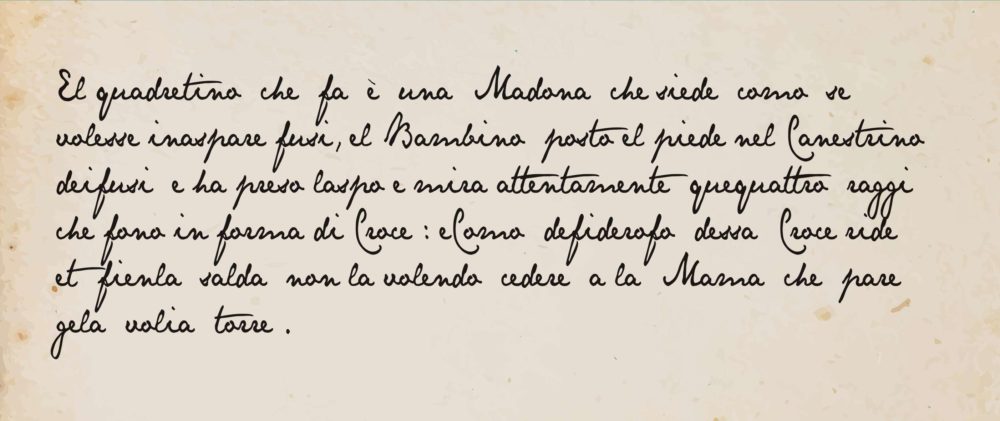 El quadretino che fa è una Madona che siede como se
volesse inaspare fusi, el Bambino posto el piede nel Canestrino
deifusi e ha preso laspo e mira attentamente quequattro raggi
che fono in forma di Croce : eComo defiderofo dessa Croce ride
et fienla salda non la volendo cedere a la Mama che pare
gela volia torre .